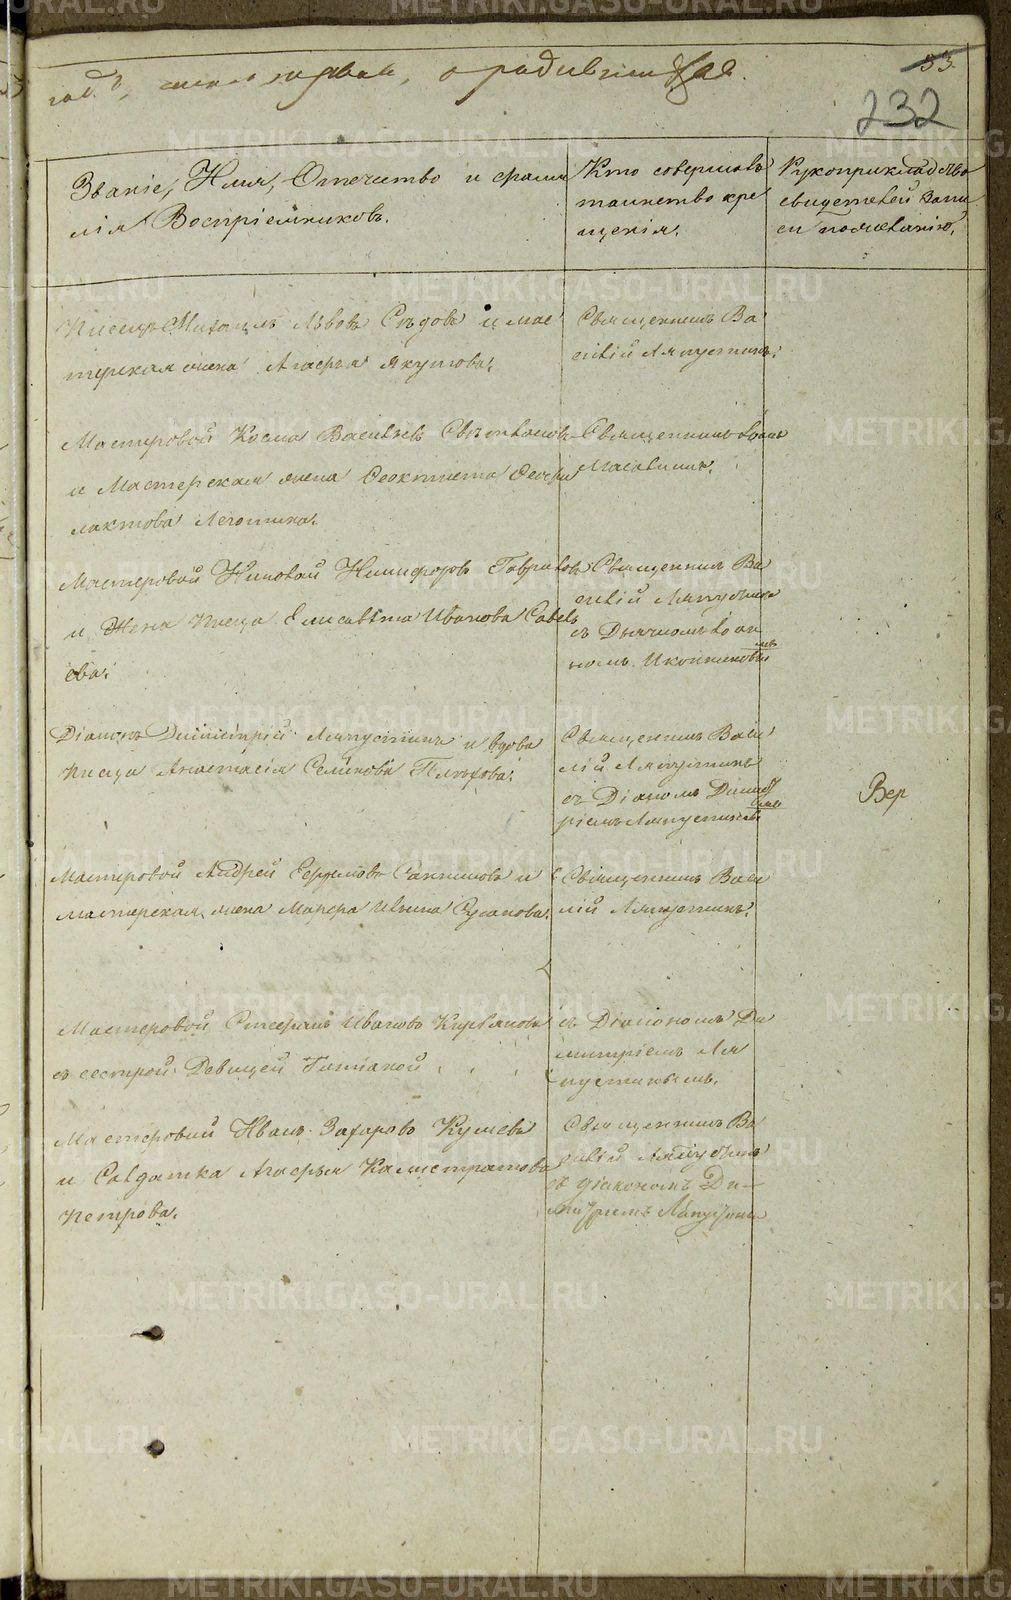 годъ, часть первая, о родившихся.
33
232
Званіе, Имя, Отечество и фами
лія Воспріемниковъ.
Кто совершалъ
таинство кре
щенія.
Рукоприкладство
свидетелей запи
си по желанію.
Писецъ Михаилъ Львовъ Седовъ и мас
терская жена Агафья Якутова.
Священникъ Ва
силій Ляпустинъ.
Мастеровой Косма Васильевъ
и Мастерская жена Феоктиста Феофи
лактова Леготина.
Священникъ Іоаннъ
Мастеровой Николай Никифоровъ Гавриловъ
и Жена писца Елисавета Иванова Савель
ева.
Священникъ Ва
силій Ляпустинъ
съ Дьячкомъ Іоан
номъ Иконниковымъ
Діаконъ Димитрій Ляпустинъ и вдова
писца Анастасія Семенова
Священникъ Васи
лій Ляпустинъ
съ Діакономъ Димит
ріемъ Ляпустинымъ
Вер
Мастеровой Андрей Ефремовъ и
мастерская жена Марфа Ильина Русанова.
Священникъ Васи
лій Ляпустинъ.
Мастеровой Стефанъ Ивановъ
съ сестрой Девицей Татіаной
съ Діакономъ Ди
митріемъ Ля
пустинымъ.
Мастеровой Иванъ Захаровъ
и Солдатка Агафья Калистратова
Петрова.
Священникъ Ва
силій Ляпустинъ
съ діакономъ Ди-
митріемъ Ляпустин
METRIKI.GASO-URAL.RU